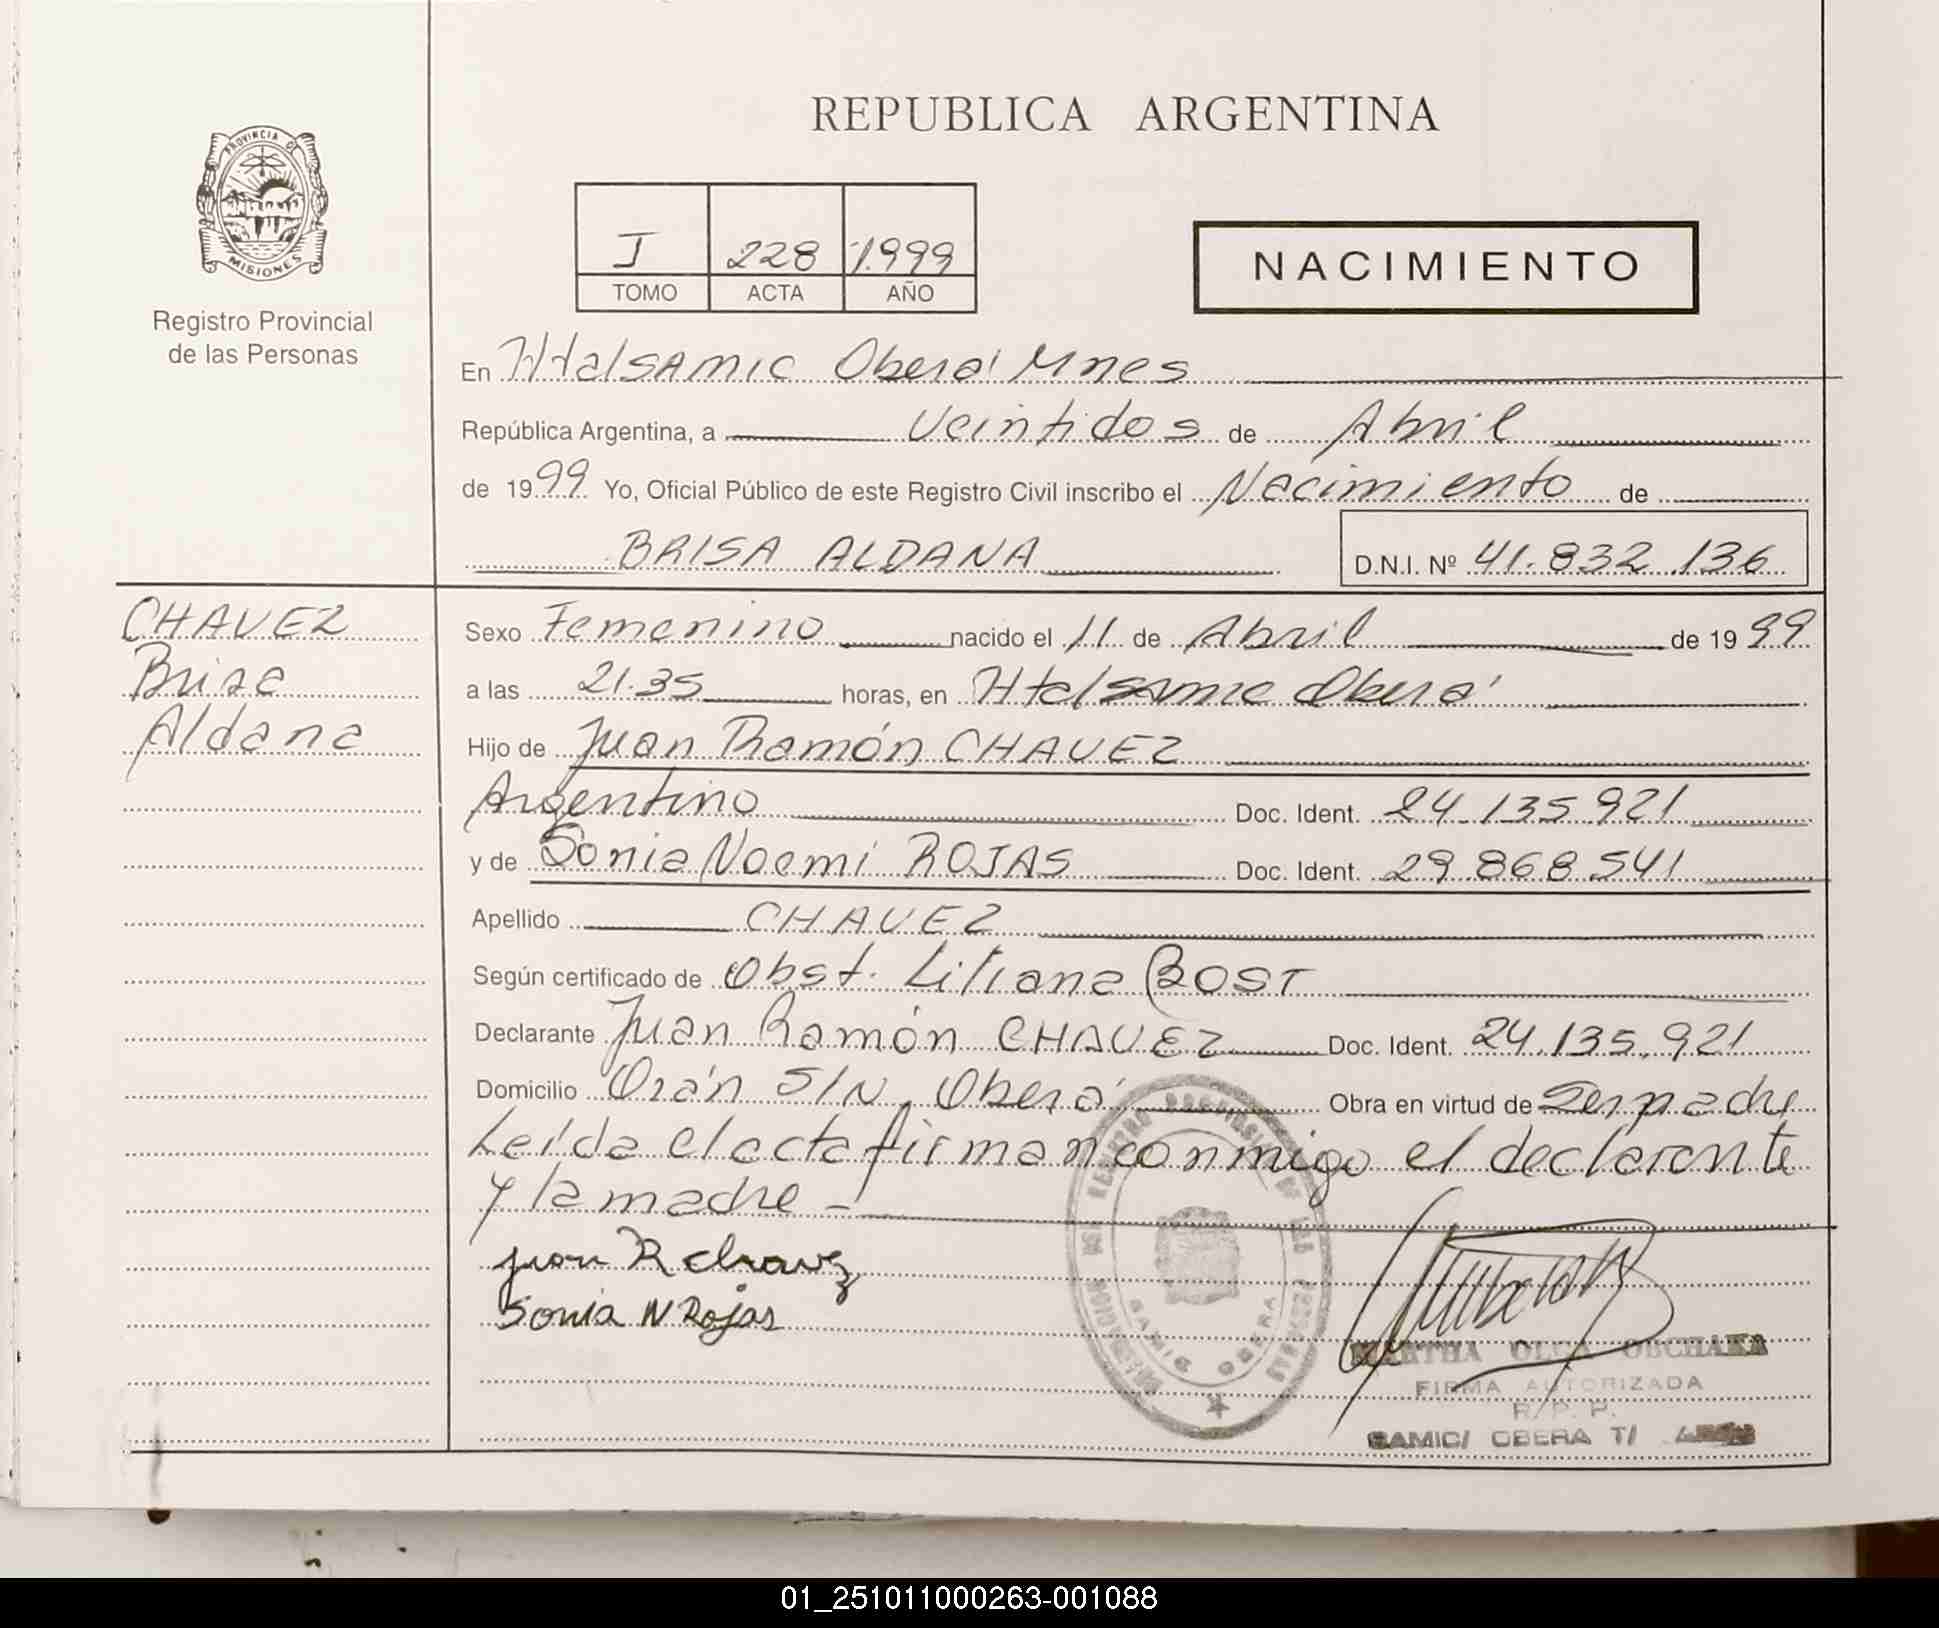 REPUBLICA ARGENTINA
PROVINCIA DE
MISIONES
Registro Provincial
de las Personas
J 228 1.999
TOMO ACTA AÑO
NACIMIENTO
En Htalsamic Oberá Mnes
República Argentina, a Veintidos de Abril
de 1999 Yo, Oficial Público de este Registro Civil inscribo el Nacimiento de
BRISA ALDANA D.N.I. Nº 41.832.136
CHAVEZ
Brisa
Aldana
Sexo Femenino nacido el 11 de Abril de 1999
a las 21.35 horas, en Htalsamic Oberá
Hijo de Juan Ramón CHAVEZ
Argentino Doc. Ident. 24.135.921
y de Sonia Noemi ROJAS Doc. Ident. 29.868.541
Apellido CHAVEZ
Según certificado de Obst. Liliana BOST
Declarante Juan Ramón CHAVEZ Doc. Ident. 24.135.921
Domicilio Orán S/N, Oberá Obra en virtud de Ser padre
Leída el acta firman conmigo el declarante
y la madre -
Juan R Chavez
Sonia N Rojas
SAMIC OBERA
MARTHA OLGA OBCHAKA
FIRMA AUTORIZADA
R/P. P.
SAMIC/ OBERA T/
01_251011000263-001088